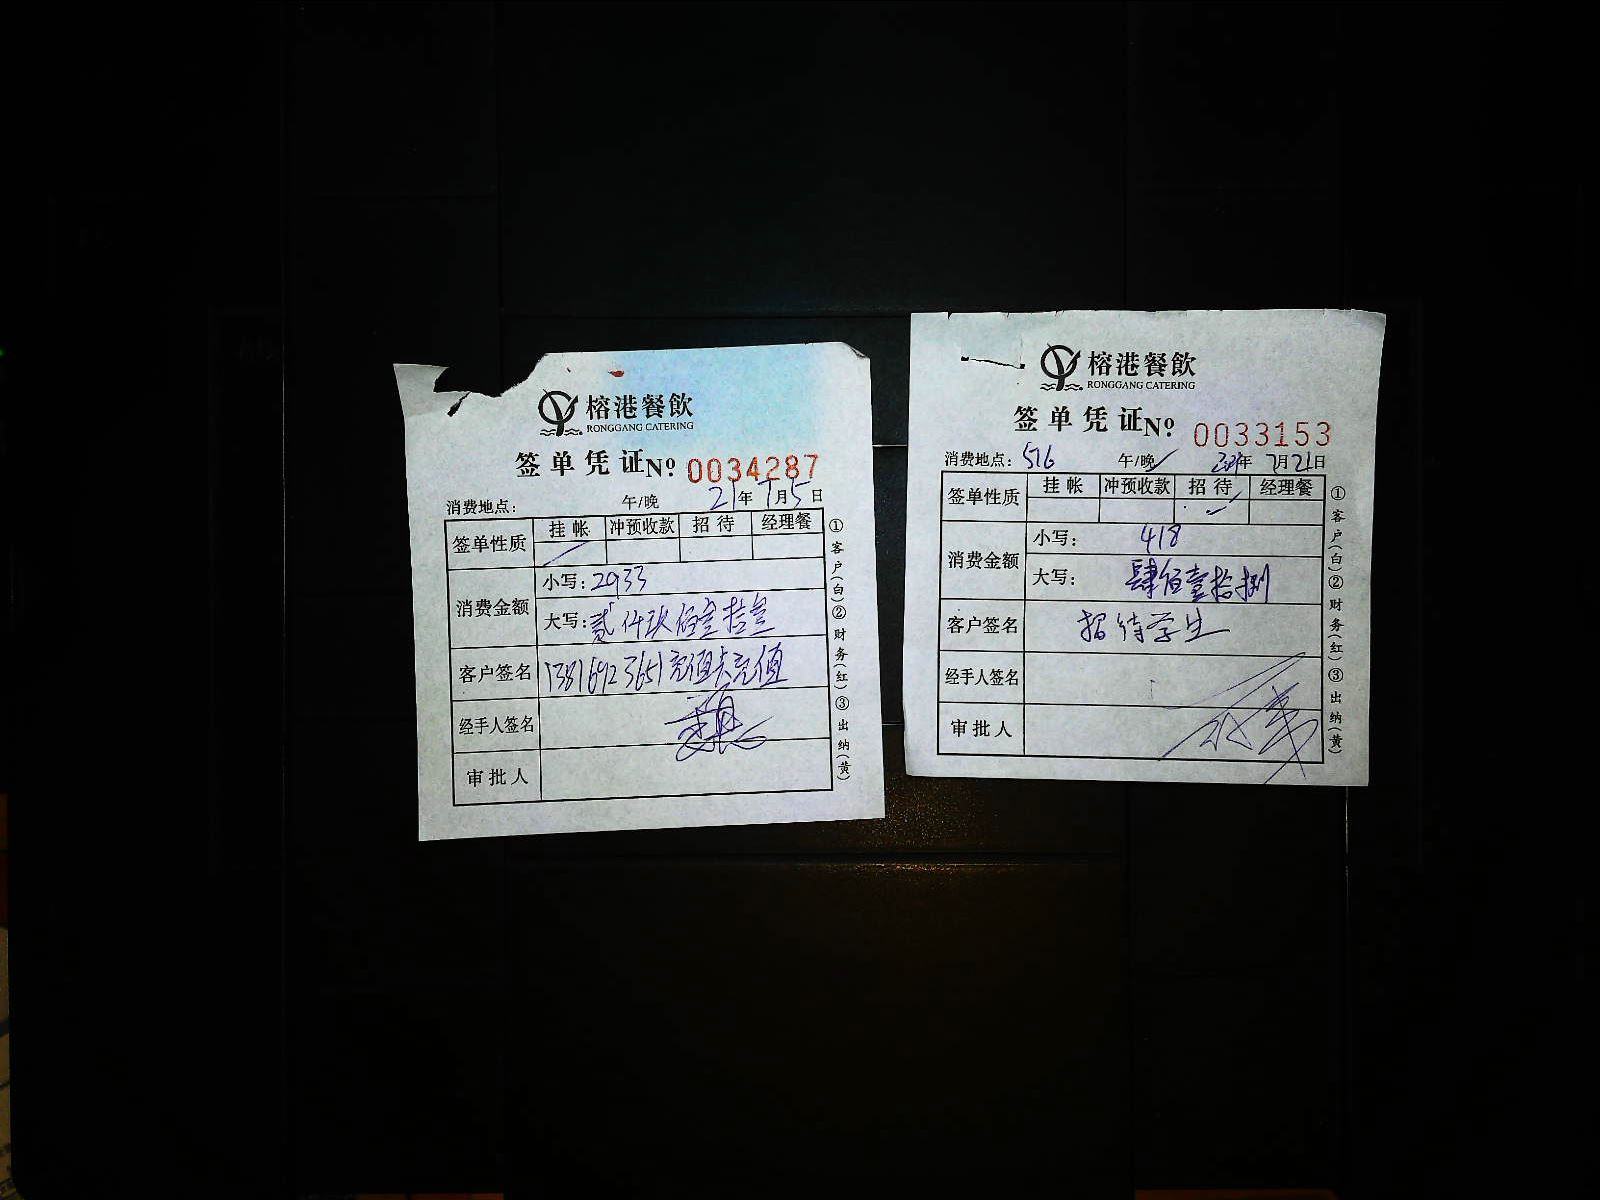 榕港餐飲
RONGGANG CATERING
签单凭证 № 0034287
消费地点: 午/晚 21年7月5日
签单性质 挂帐 冲预收款 招待 经理餐
消费金额
小写: 2933
大写: 贰仟玖佰叁拾叁
客户签名 充值卡充值
经手人签名
审批人
①客户(白)②财务(红)③出纳(黄)
榕港餐飲
RONGGANG CATERING
签单凭证 № 0033153
消费地点: 516 午/晚 年7月21日
签单性质 挂帐 冲预收款 招待 经理餐
消费金额
小写: 418
大写: 肆佰壹拾捌
客户签名 招待学生
经手人签名
审批人
①客户(白)②财务(红)③出纳(黄)